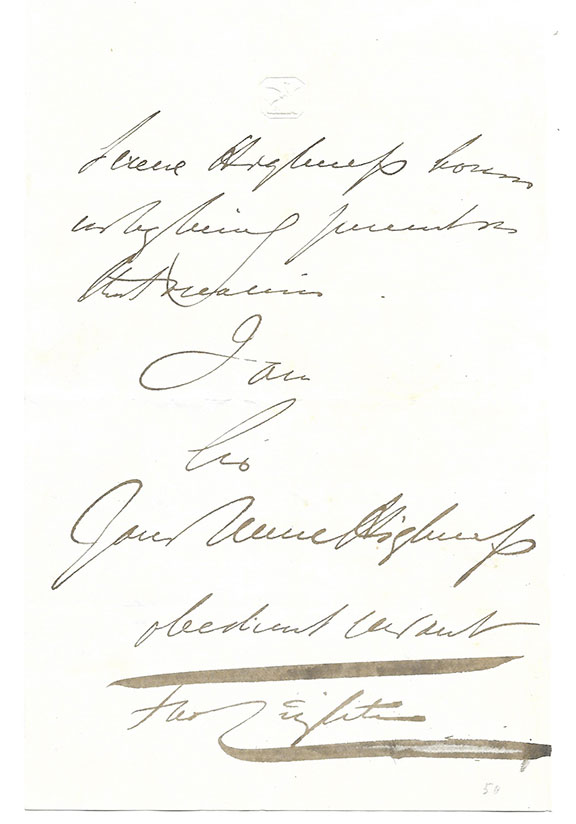 Serene Highness honor
us by being present on
that occasion.
I am
Sir
Your Serene Highness
obedient servant
50